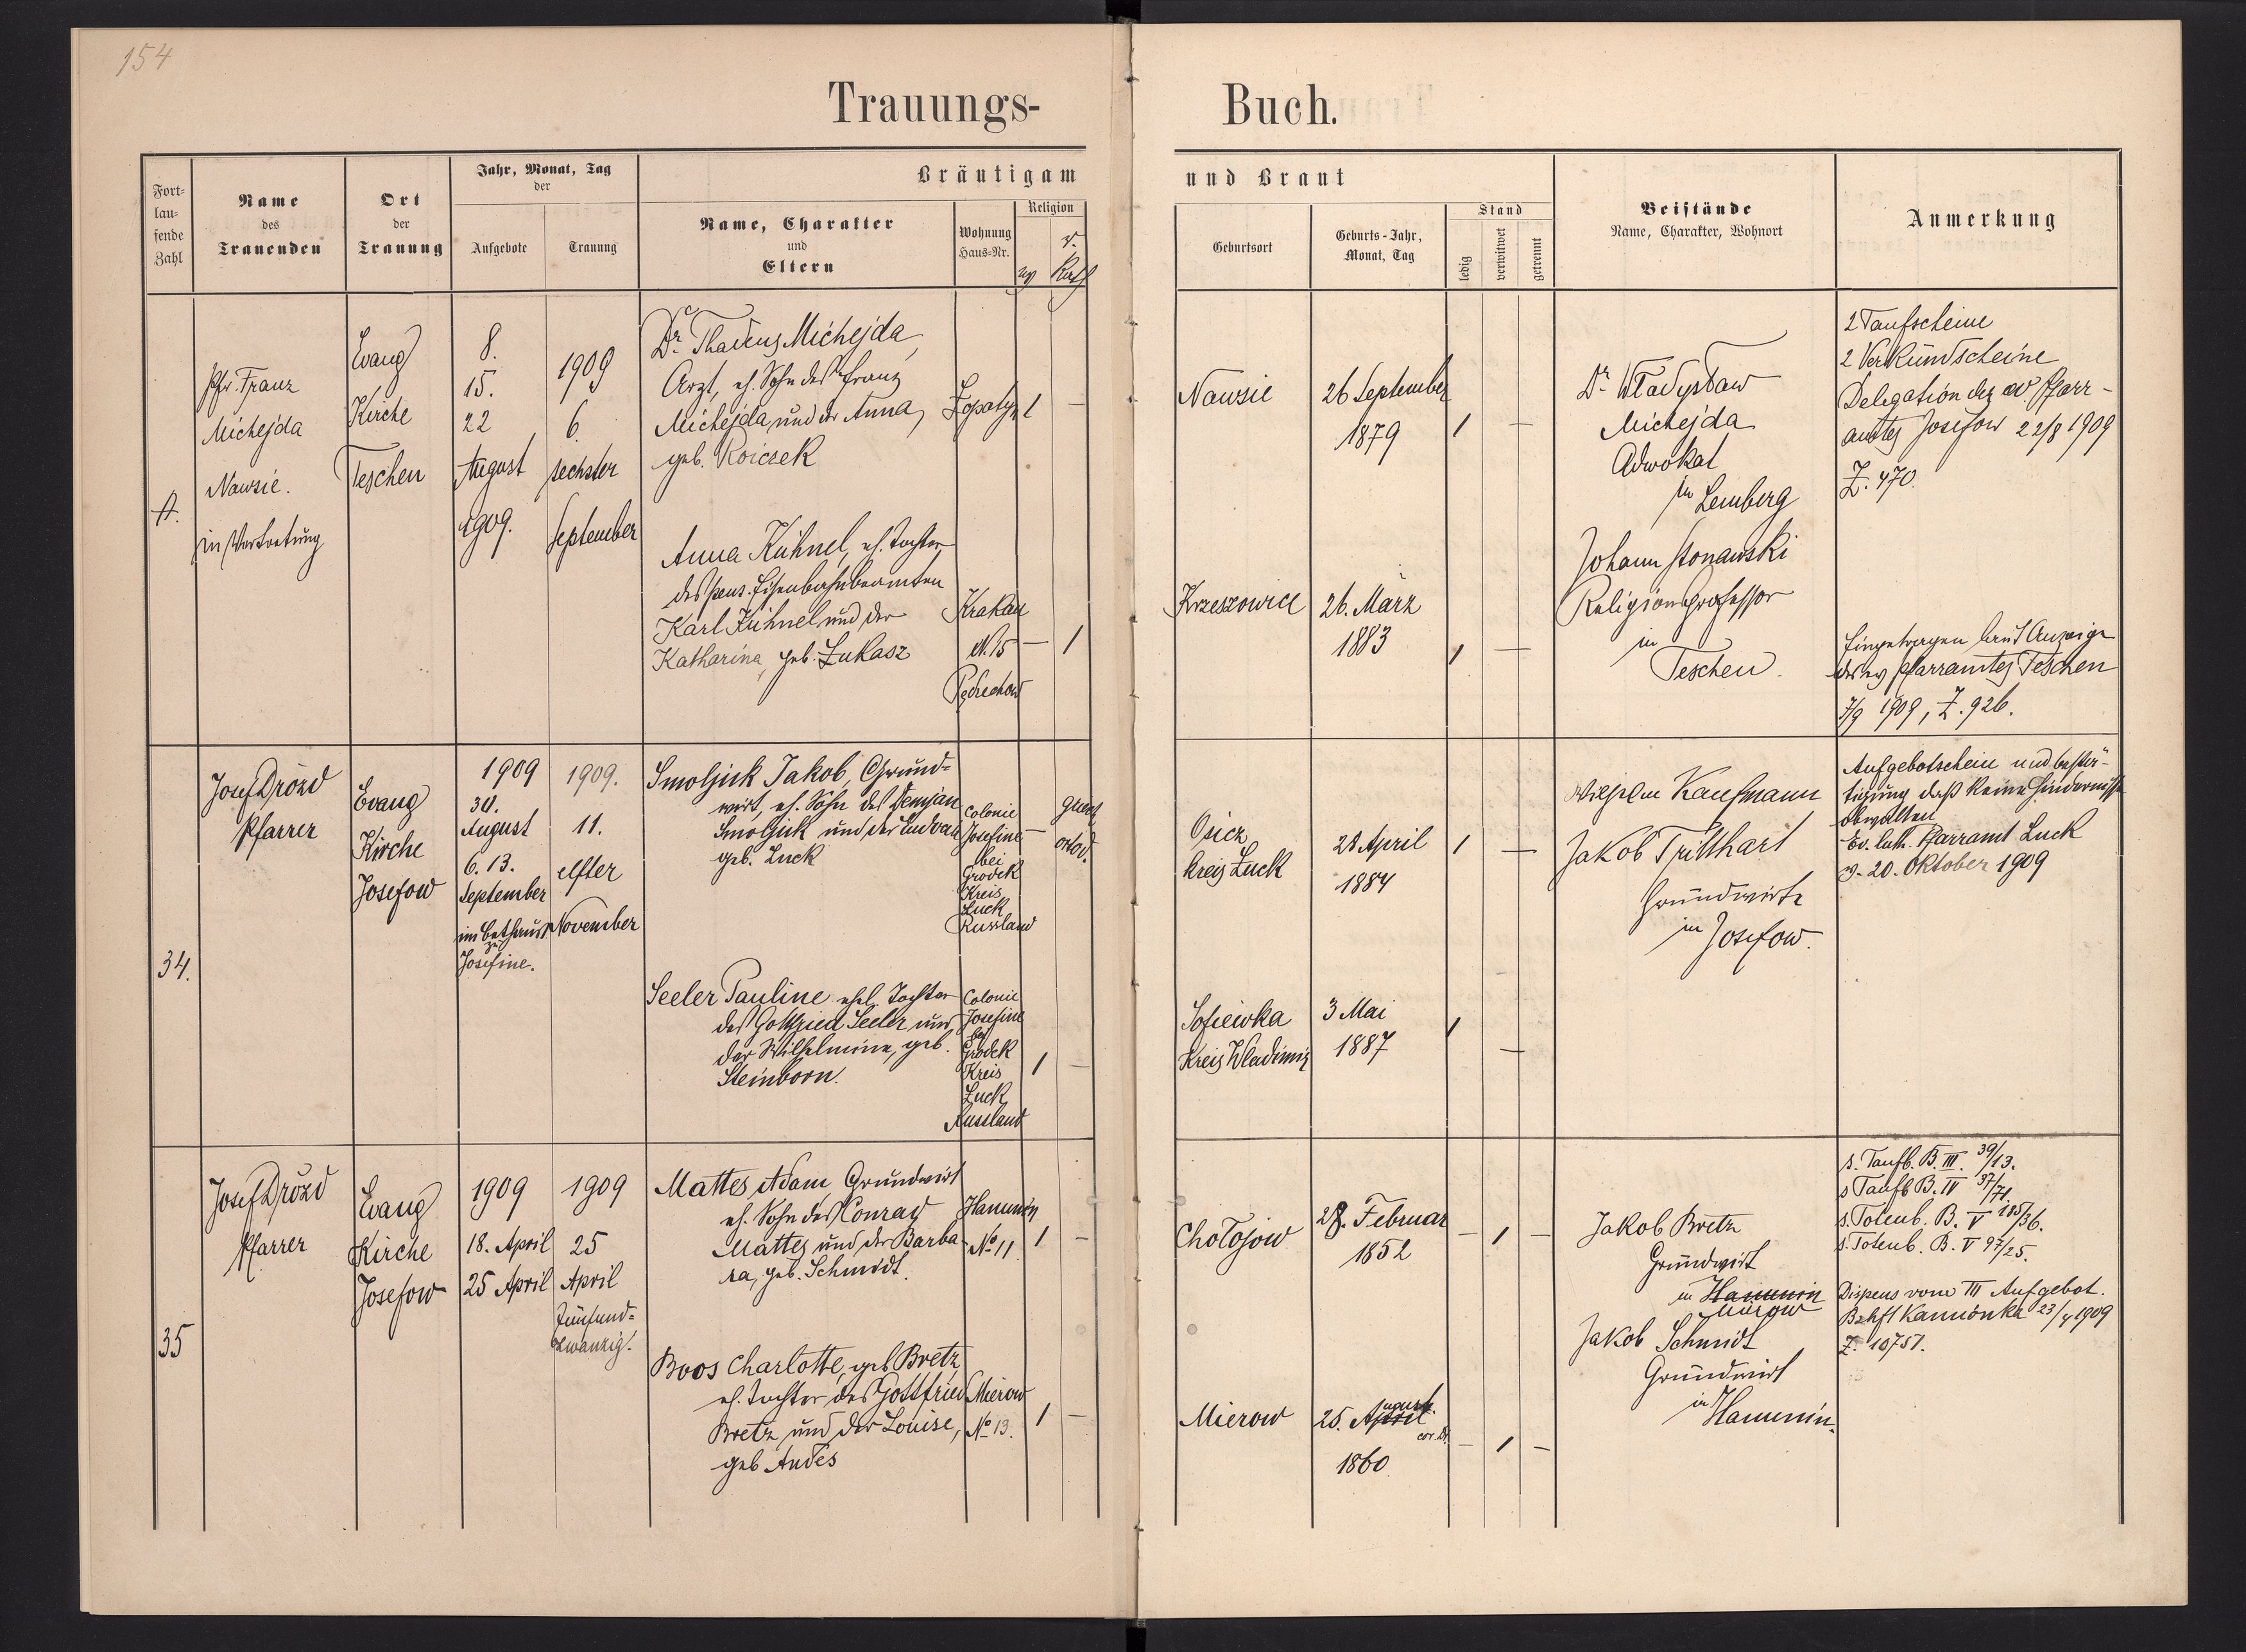 154
Trauungs-
Buch.
Fort-
lau-
fende
Zahl
Name
des
Trauenden
Ort
der
Trauung
Jahr, Monat, Tag
der
Aufgebote
Trauung
Bräutigam
Name, Charakter
und
Eltern
Wohnung
Haus-Nr.
Religion
r.
Kath
und Braut
Geburtsort
Geburts-Jahr,
Monat, Tag
Stand
ledig
verwitwet
getrennt
Beistände
Name, Charakter, Wohnort
Anmerkung
A.
Pfr. Franz
Michejda
Nawsie.
in Vertretung
Evang
Kirche
Teschen
8.
15.
22
August
1909.
1909
6.
sechster
September
Dr. Thadeus Michejda,
Arzt, eh. Sohn des Franz
Michejda und der Anna,
geb. Roiczek
Łopatyn
1
—
Nawsie
26 September
1879
1
—
Anna Kühnel, eh. Tochter
des pens. Eisenbahnbeamten
Karl Kühnel und der
Katharina, geb. Łukasz
Krakau
N. 15
—
1
Krzeszowice
26. März
1883
1
—
Dr. Władysław
Michejda
Adwokat
in Lemberg
Johann Stonawski
Religionsprofessor
in
Teschen.
2 Taufscheine
2 Verkündscheine
Delegation des ev Pfarr-
amtes Josefow 22/8 1909
Z. 470.
Eingetragen laut Anzeige
des ev Pfarramtes Teschen
7/9 1909, Z. 926.
34.
Josef Drózd
Pfarrer
Evang
Kirche
Josefow
1909
30.
August
6. 13.
September
im Bethause
zu
Josefine.
1909.
11.
elfter
November
Smoljuk Jakob, Grund-
wirt, eh. Sohn des Demjan
Smoljuk und der
geb. Luck
Colonie
Josefine
bei
Grodek
Kreis
Luck
Russland
—
griech
ortod.
Osicz
Kreis Łuck
28 April
1884
1
—
Seeler Pauline ehel. Tochter
des Gottfried Seeler und
der Wilhelmine, geb.
Steinborn.
Colonie
Josefine
bei
Grodek
Kreis
Łuck
Russland
1
—
Sofiewka
Kreis Wladimir
3 Mai
1887
1
—
Wilhelm Kaufmann
Jakob Tritthart
Grundwirte
in Josefow.
Aufgebotschein und bestä-
tigung daß keine Hindernisse
obwalten
Ev. luth. Pfarramt Luck
v. 20. Oktober 1909
35
Josef Drózd
Pfarrer
Evang
Kirche
Josefow
1909
18. April
25 April
1909
25
April
Fünfund-
zwanzig.
Mattes Adam, Grundwirt
eh. Sohn des Conrad
Mattes und der Barba-
ra, geb. Schmidt.
Hanunin
No 11
1
—
Chołojow
28. Februar
1852
—
1
—
Boos Charlotte, geb Bretz
eh. Tochter des Gottfried
Bretz und der Louise,
geb Andes
Mierow
No 13.
1
—
Mierow
25. April
August.
cor. Dr.
1860
—
1
—
Jakob Bretz
Grundwirt
in Hanunin
Mierow
Jakob Schmidt
Grundwirt
in Hanunin.
s. Taufb. B. III. 39/13.
s Taufb B. IV 37/71.
s. Totenb. B. V 185/36.
s. Totenb. B. V 97/25.
Dispens vom III Aufgebot.
Bzhft Kamionka 23/4 1909
Z. 10757.